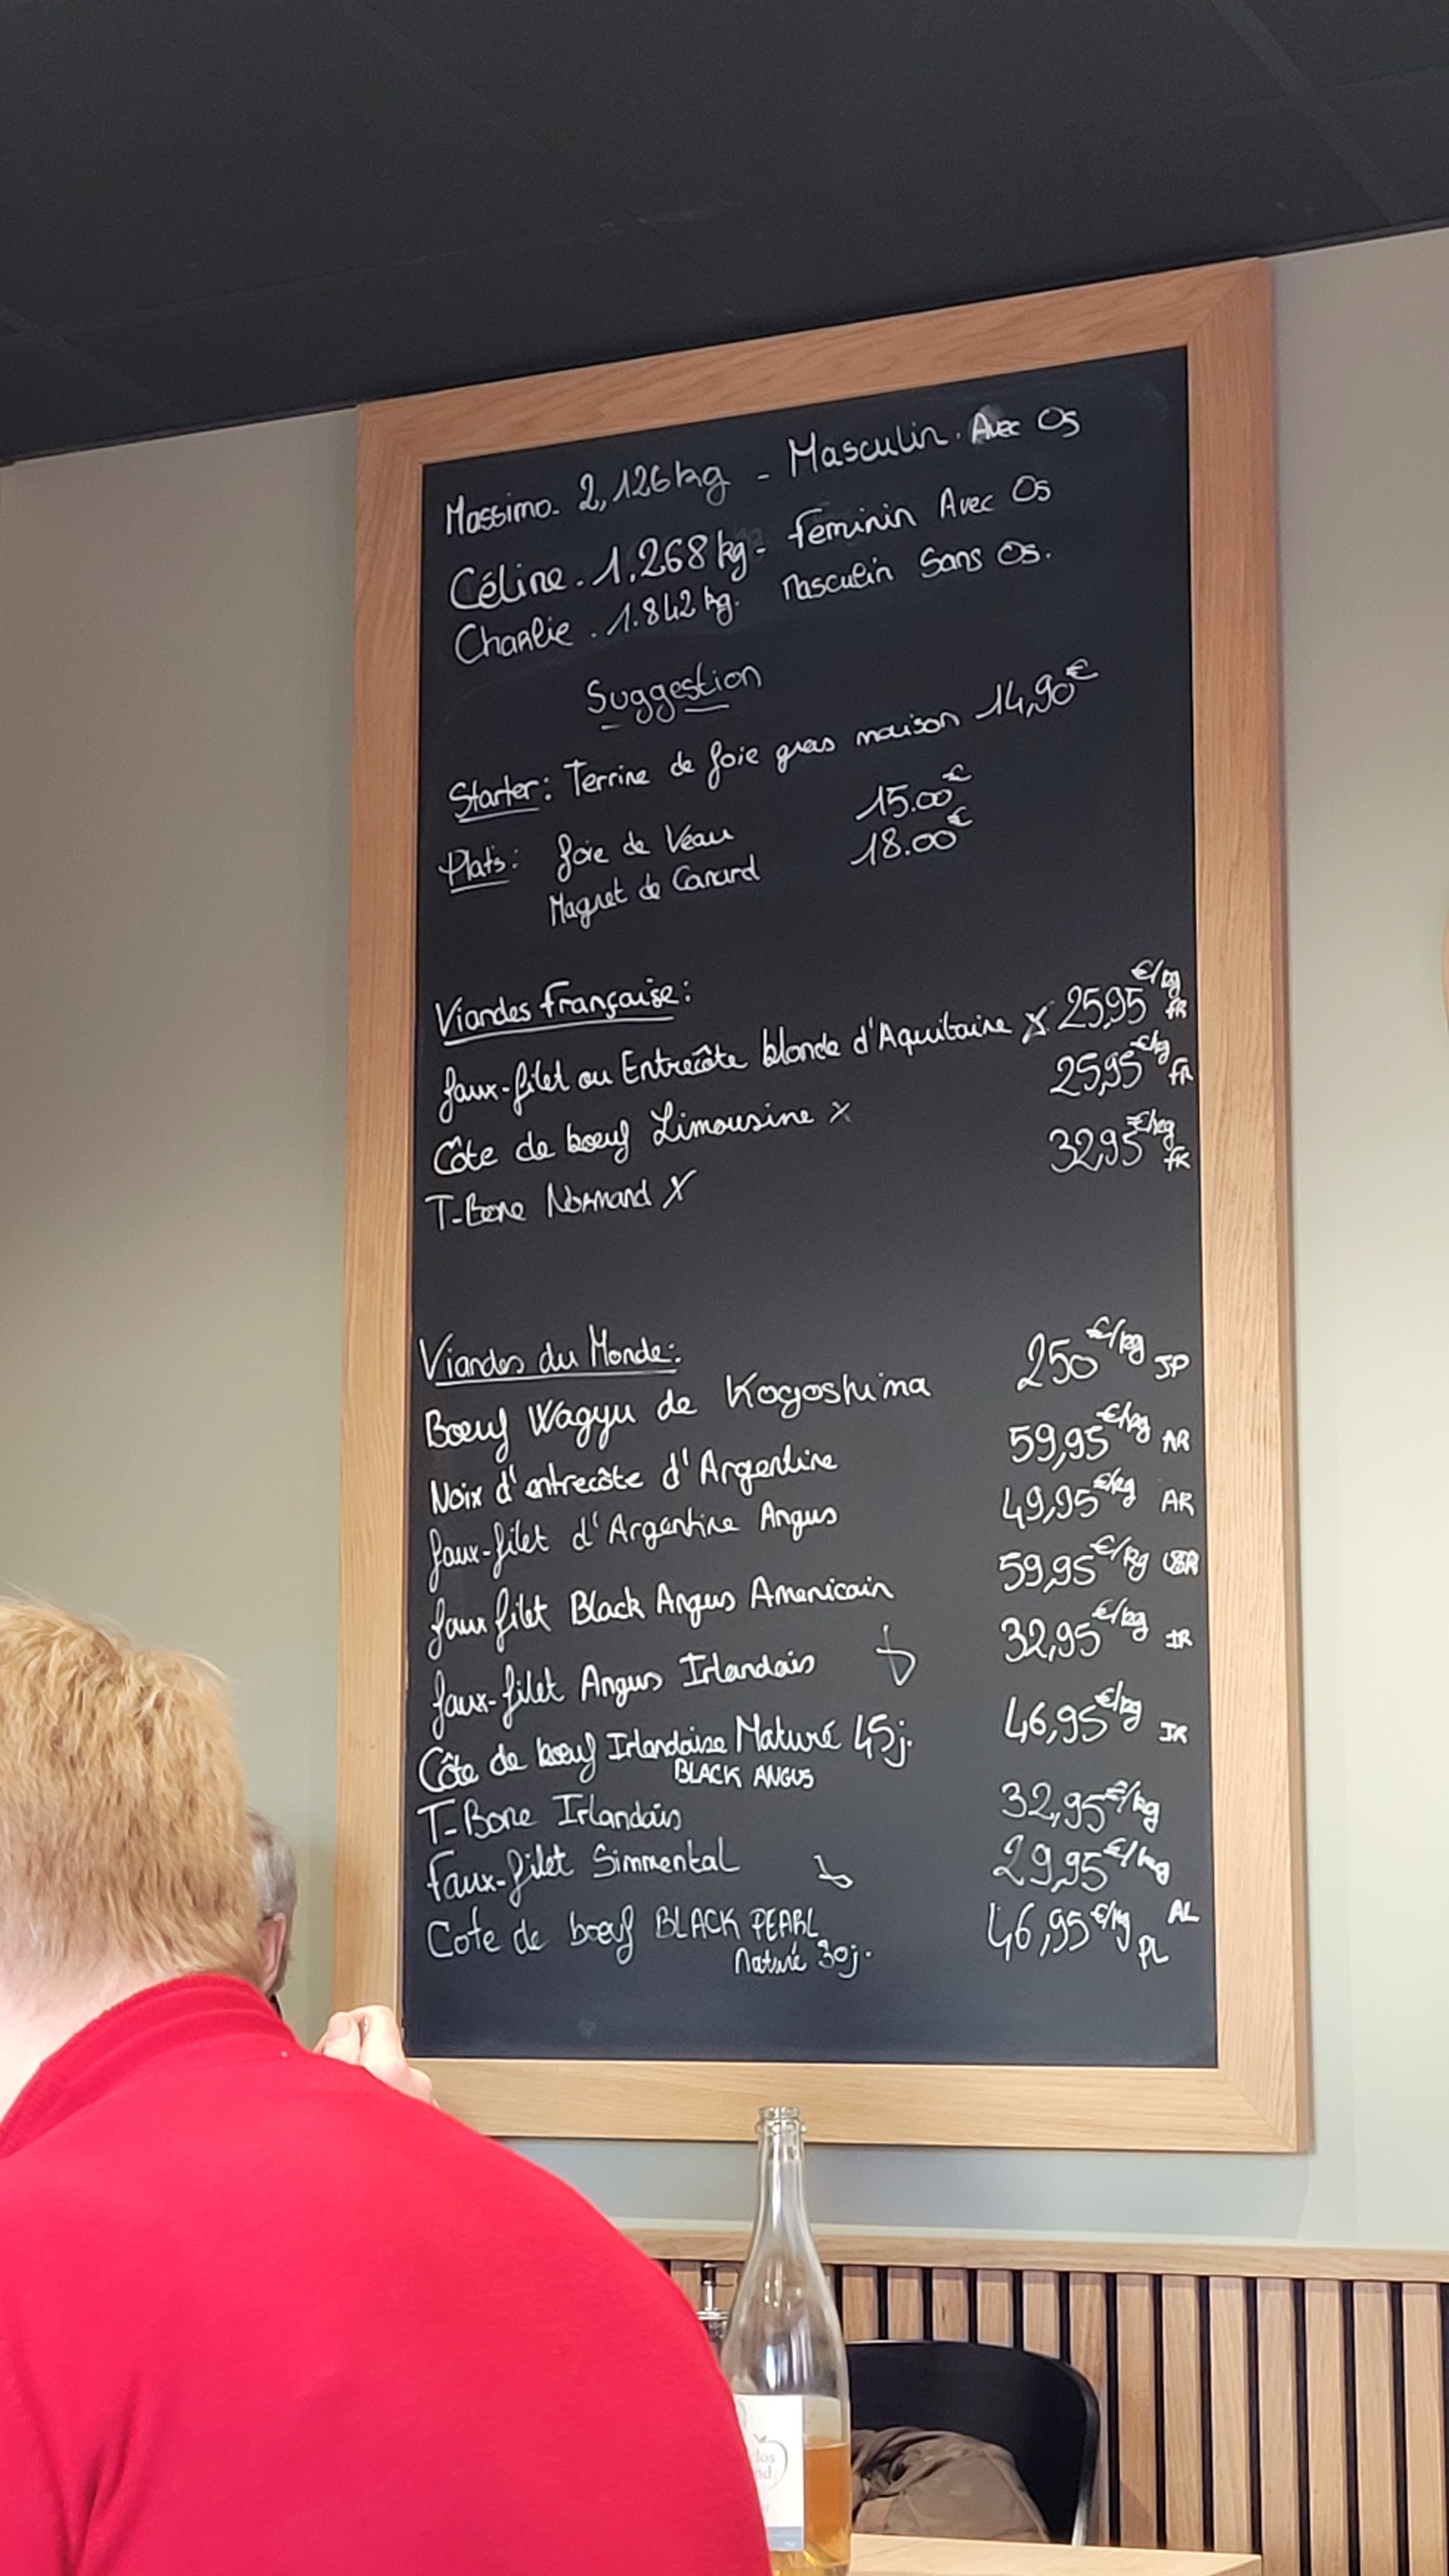 Massimo. 2,126 kg - Masculin. Avec Os
Céline. 1.268 kg - Feminin Avec Os
Charlie. 1.842 kg. Masculin Sans Os.
Suggestion
Starter: Terrine de foie gras maison 14,90€
Plats: foie de Veau 15.00€
Magret de Canard 18.00€
Viandes Française:
faux-filet ou Entrecôte blonde d'Aquitaine X 25,95 €/kg FR
Côte de bœuf Limousine X 25,95 €/kg FR
T-Bone Normand X 32,95 €/kg FR
Viandes du Monde:
Bœuf Wagyu de Kogoshima 250 €/kg JP
Noix d'entrecôte d'Argentine 59,95 €/kg AR
faux-filet d'Argentine Angus 49,95 €/kg AR
faux filet Black Angus Americain 59,95 €/kg
faux-filet Angus Irlandais 32,95 €/kg IR
Côte de bœuf Irlandaise Maturé 45j. 46,95 €/kg IR
BLACK ANGUS
T-Bone Irlandais 32,95 €/kg
Faux-filet Simmental 29,95 €/kg AL
Cote de bœuf BLACK PEARL 46,95 €/kg PL
Maturé 30j.